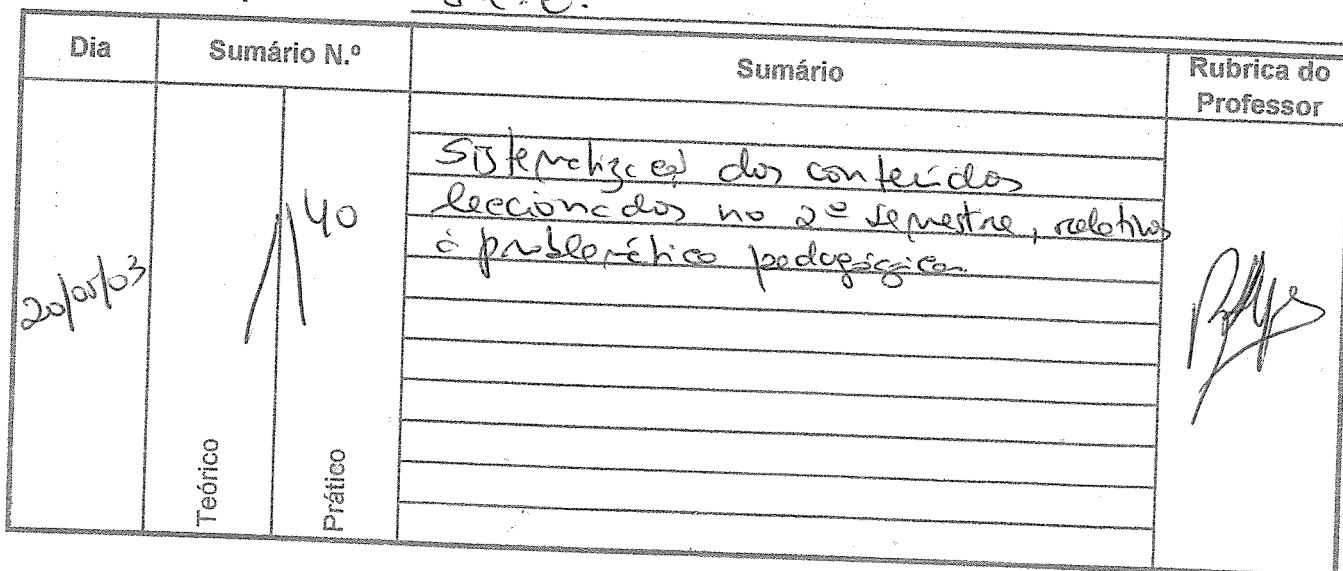 Dia
Sumário N.º
Sumário
Rubrica do
Professor
20/05/03
40
Sistematização dos conteúdos
leccionados no 2º semestre, relativos
à problemática pedagógica
Teórico
Prático